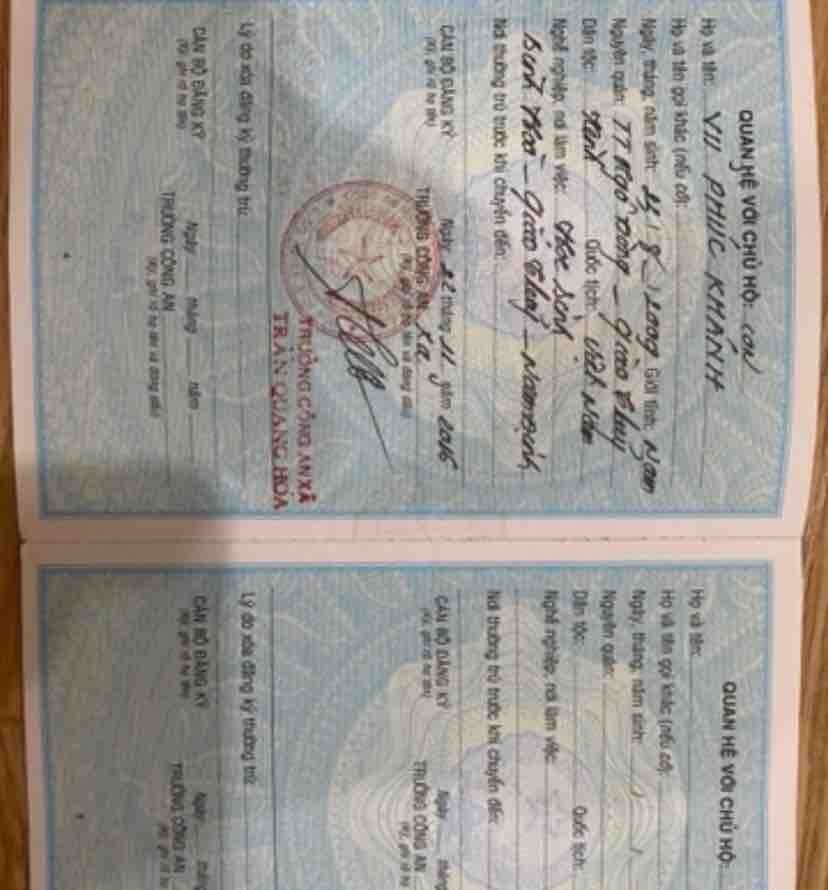 QUAN HỆ VỚI CHỦ HỘ: con
Họ và tên: VŨ PHÚC KHÁNH
Họ và tên gọi khác (nếu có):
Ngày, tháng, năm sinh: 8 / 2009 Giới tính: Nam
Nguyên quán: TT Ngô Đồng - Giao Thuỷ
Dân tộc: Kinh Quốc tịch: Việt Nam
Nghề nghiệp, nơi làm việc: Học sinh
Nơi thường trú trước khi chuyển đến:
Bình Hoà - Giao Thuỷ - Nam Định
Ngày 22 tháng 11 năm 2016
CÁN BỘ ĐĂNG KÝ TRƯỞNG CÔNG AN xã
(Ký, ghi rõ họ tên) (Ký, ghi rõ họ tên và đóng dấu)
TRƯỞNG CÔNG AN XÃ
TRẦN QUANG HÒA
Lý do xóa đăng ký thường trú:
Ngày tháng năm
CÁN BỘ ĐĂNG KÝ TRƯỞNG CÔNG AN
(Ký, ghi rõ họ tên) (Ký, ghi rõ họ tên và đóng dấu)
QUAN HỆ VỚI CHỦ HỘ:
Họ và tên:
Họ và tên gọi khác (nếu có):
Ngày, tháng, năm sinh: / /
Nguyên quán:
Dân tộc: Quốc tịch:
Nghề nghiệp, nơi làm việc:
Nơi thường trú trước khi chuyển đến:
Ngày tháng
CÁN BỘ ĐĂNG KÝ TRƯỞNG CÔNG AN
(Ký, ghi rõ họ tên) (Ký, ghi rõ họ
Lý do xóa đăng ký thường trú:
Ngày tháng
CÁN BỘ ĐĂNG KÝ TRƯỞNG CÔNG AN
(Ký, ghi rõ họ tên) (Ký, ghi rõ họ